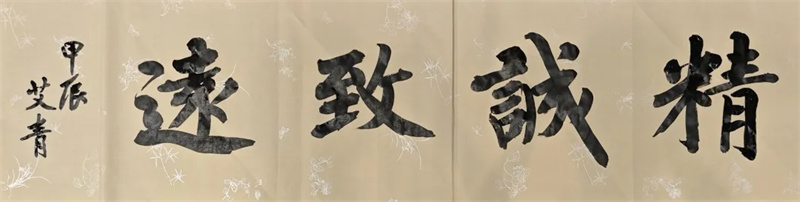 精誠致遠
甲辰
艾青